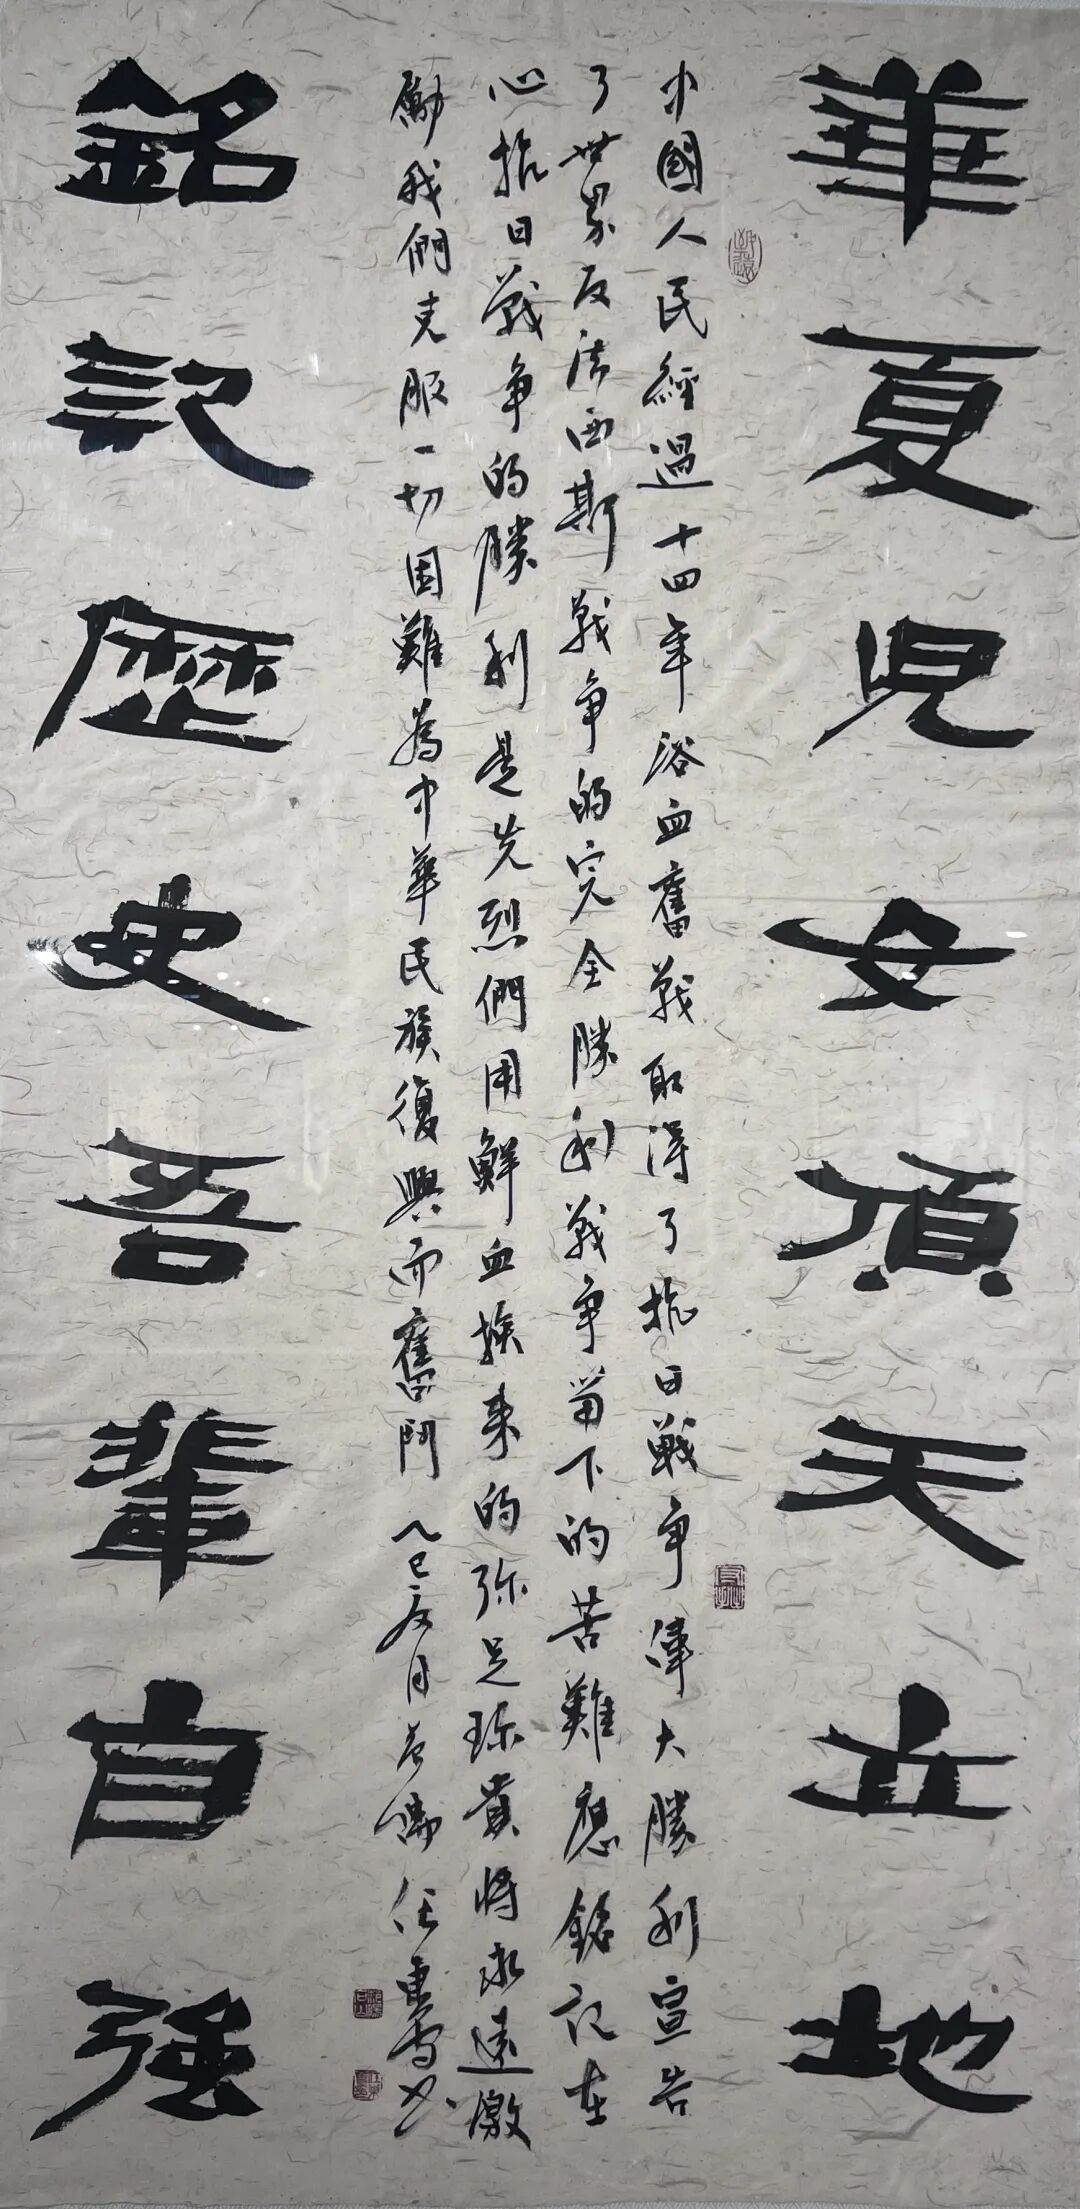 華夏兒女頂天立地
中國人民經過十四年浴血奮戰取得了抗日戰爭偉大勝利宣告
了世界反法西斯戰爭的完全勝利戰爭留下的苦難應銘記在
心抗日戰爭的勝利是先烈們用鮮血換來的弥足珎貴將永遠激
勵我們克服一切困難為中華民族復興而奮鬥 乙巳夏月 任東 書
銘記歷史吾輩自強